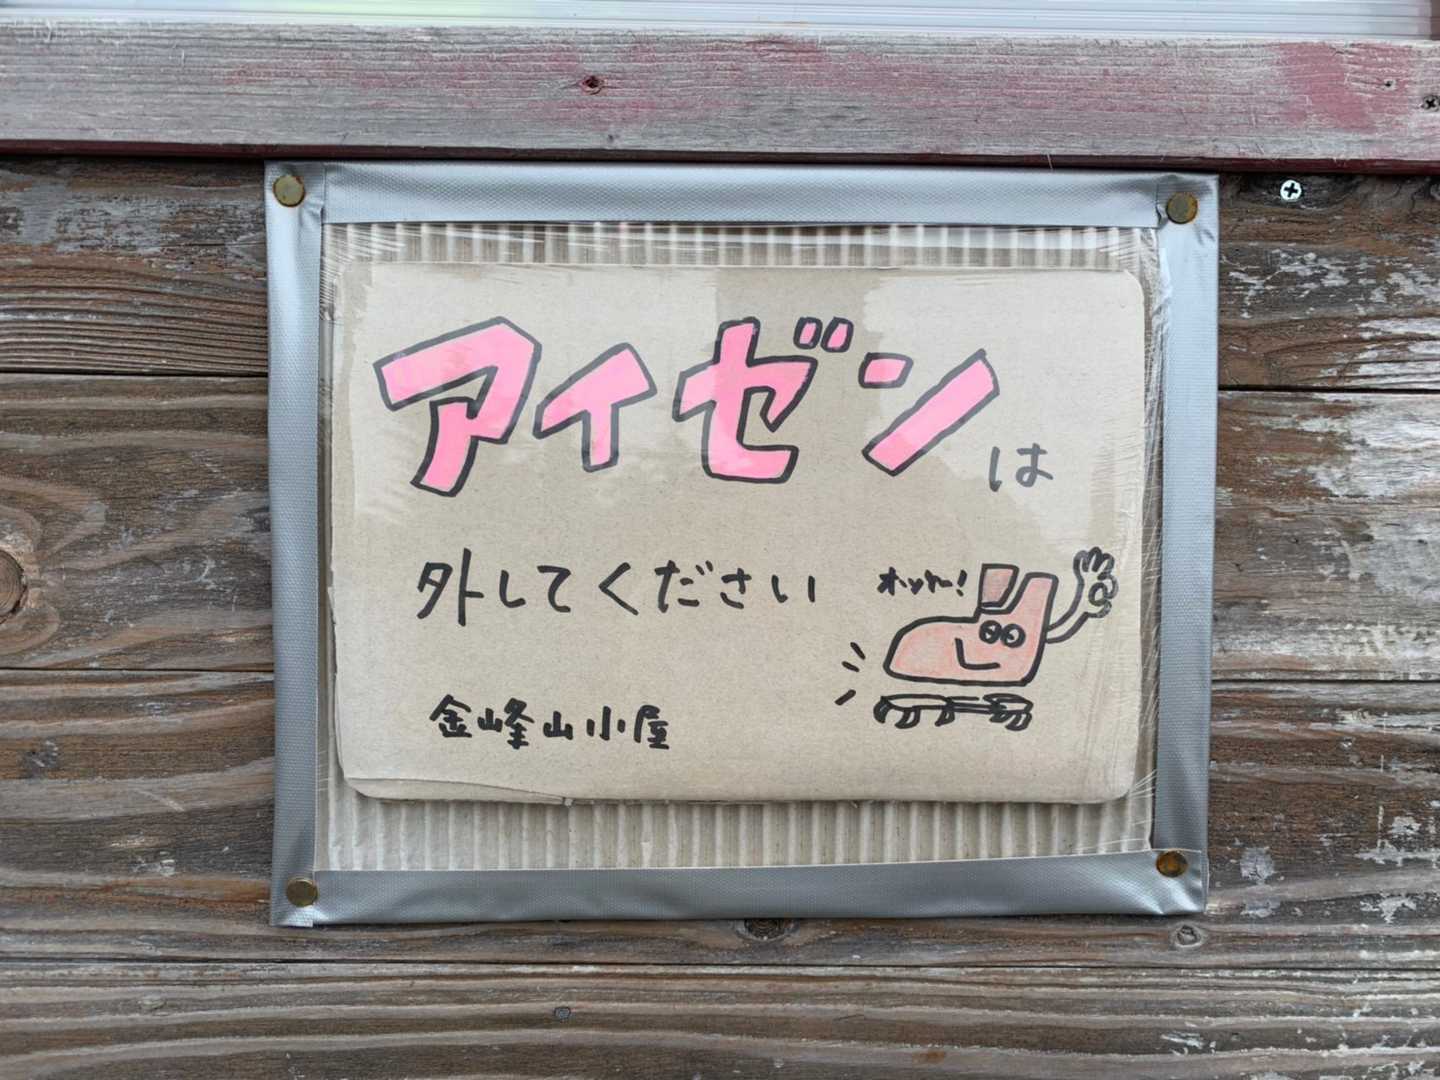 アイゼンは
外してください
オッケー!
金峰山小屋